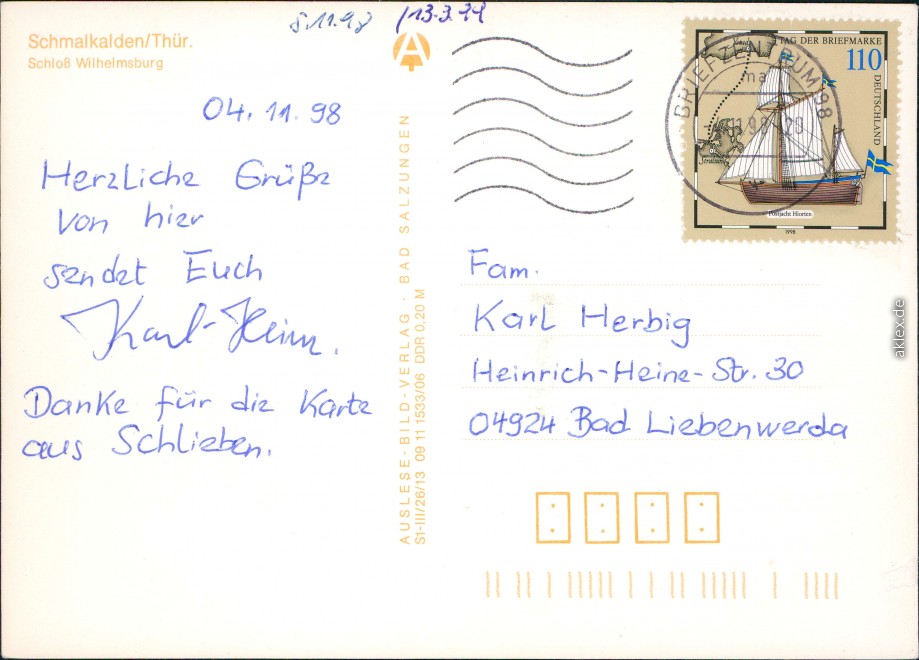 5.11.98 /13.3.99
Schmalkalden/Thür.
Schloß Wilhelmsburg
04.11.98
Herzliche Grüße
von hier
sendet Euch
Karl-Heinz.
Danke für die Karte
aus Schlieben.
AUSLESE-BILD-VERLAG · BAD SALZUNGEN
S1-III/26/13 09 11 1533/06 DDR 0,20 M
TAG DER BRIEFMARKE
110
DEUTSCHLAND
Postjacht Hiorten
1998
BRIEFZENTRUM 98
Fam.
Karl Herbig
Heinrich-Heine-Str. 30
04924 Bad Liebenwerda
aklex.de